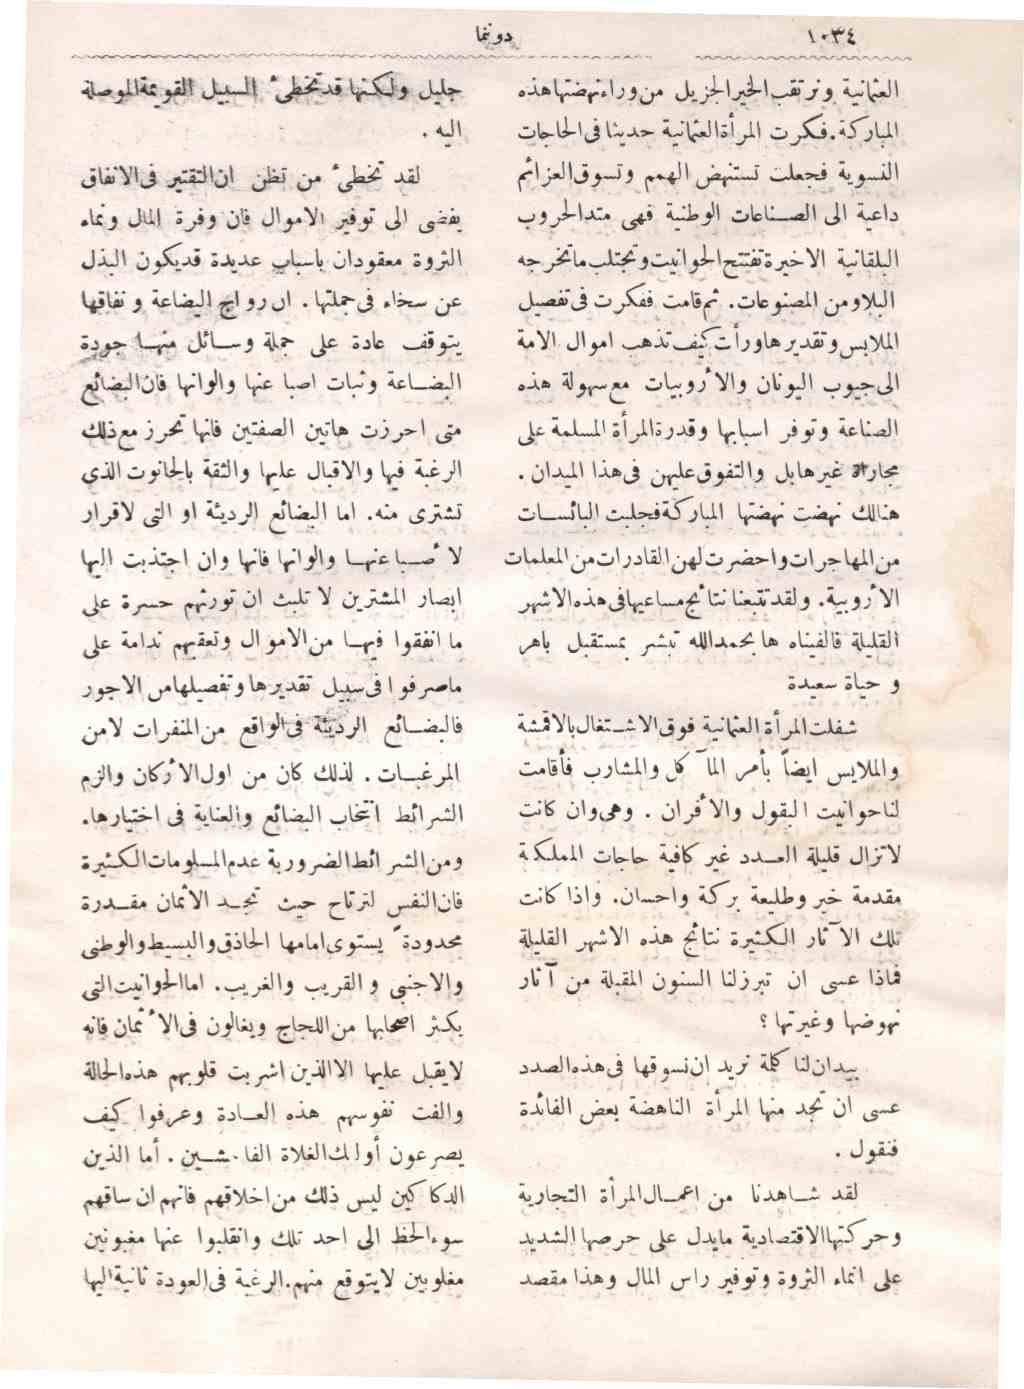 ١٠٣٤
دونما
العثمانية ونرتقب الخير الجزيل من وراء نهضتها هذه
المباركة. فكرت المرأة العثمانية حديثا فى الحاجات
النسوية فجعلت تستنهض الهمم وتسوق العزائم
داعية الى الصناعات الوطنية فهى منذ الحروب
البلقانية الاخيرة تفتتح الحوانيت وتجتلب ماتخرجه
البلاد من المصنوعات. ثم قامت ففكرت فى تفصيل
الملابس وتقديرها ورأت كيف تذهب اموال الامة
الى جيوب اليونان والأروبيات مع سهولة هذه
الصناعة وتوفر اسبابها وقدرة المرأة المسلمة على
مجاراة غيرها بل والتفوق عليهن فى هذا الميدان .
هنالك نهضت نهضتها المباركة فجلبت البائسات
من المهاجرات واحضرت لهن القادرات من المعلمات
الأروبية. ولقد تتبعنا نتائج مساعيها فى هذه الاشهر
القليلة فالفيناه ها بحمدالله تبشر بمستقبل باهر
و حياة سعيدة
شغلت المرأة العثمانية فوق الاشتغال بالاقمشة
والملابس ايضاً بأمر المآكل والمشارب فأقامت
لنا حوانيت البقول والأفران . وهى وان كانت
لاتزال قليلة العدد غير كافية حاجات المملكة
مقدمة خير وطليعة بركة واحسان. واذا كانت
تلك الآثار الكثيرة نتائج هذه الاشهر القليلة
فماذا عسى ان تبرزلنا السنون المقبلة من آثار
نهوضها وغيرتها ؟
بيدان لنا كلمة نريد ان نسوقها فى هذه الصدد
عسى ان تجد منها المرأة الناهضة بعض الفائدة
فنقول .
لقد شاهدنا من اعمال المرأة التجارية
وحركتها الاقتصادية مايدل على حرصها الشديد
على انماء الثروة وتوفير راس المال وهذا مقصد
جليل ولكنها قد تخطئ السبيل القويمة الموصلة
اليه .
لقد تخطئ من تظن ان التقتير فى الانفاق
يفضى الى توفير الاموال فان وفرة المال ونماء
الثروة معقودان باسباب عديدة قديكون البذل
عن سخاء فى جملتها . ان رواج البضاعة و نفاقها
يتوقف عادة على جملة وسائل منها جودة
البضاعة وثبات اصبا عنها والوانها فان البضائع
متى احرزت هاتين الصفتين فانها تحرز مع ذلك
الرغبة فيها والاقبال عليها والثقة بالحانوت الذى
تشترى منه. اما البضائع الرديئة او التى لاقرار
لأصباعنها والوانها فانها وان اجتذبت اليها
ابصار المشترين لا تلبث ان تورثهم حسرة على
ما انفقوا فيها من الاموال وتعقبهم ندامة على
ماصرفوا فى سبيل تقديرها وتفصيلها من الاجور
فالبضائع الرديئة فى الواقع من المنفرات لامن
المرغبات . لذلك كان من اول الأركان والزم
الشرائط انتخاب البضائع والعناية فى اختيارها.
ومن الشرائط الضرورية عدم المساومات الكثيرة
فان النفس لترتاح حيث تجد الأثمان مقدرة
محدودة يستوى امامها الحاذق والبسيط والوطنى
والاجنبى و القريب والغريب. اما الحوانيت التى
يكثر اصحابها من اللجاج ويغالون فى الأثمان فانه
لايقبل عليها الا الذين اشربت قلوبهم هذه الحالة
والفت نفوسهم هذه العادة وعرفوا كيف
يصرعون أولئك الغلاة الفاحشين . أما الذين
ليس ذلك من اخلاقهم فانهم ان ساقهم
سوء الحظ الى احد تلك وانقلبوا عنها مغبونين
مغلوبين لايتوقع منهم. الرغبة فى العودة ثانية اليها